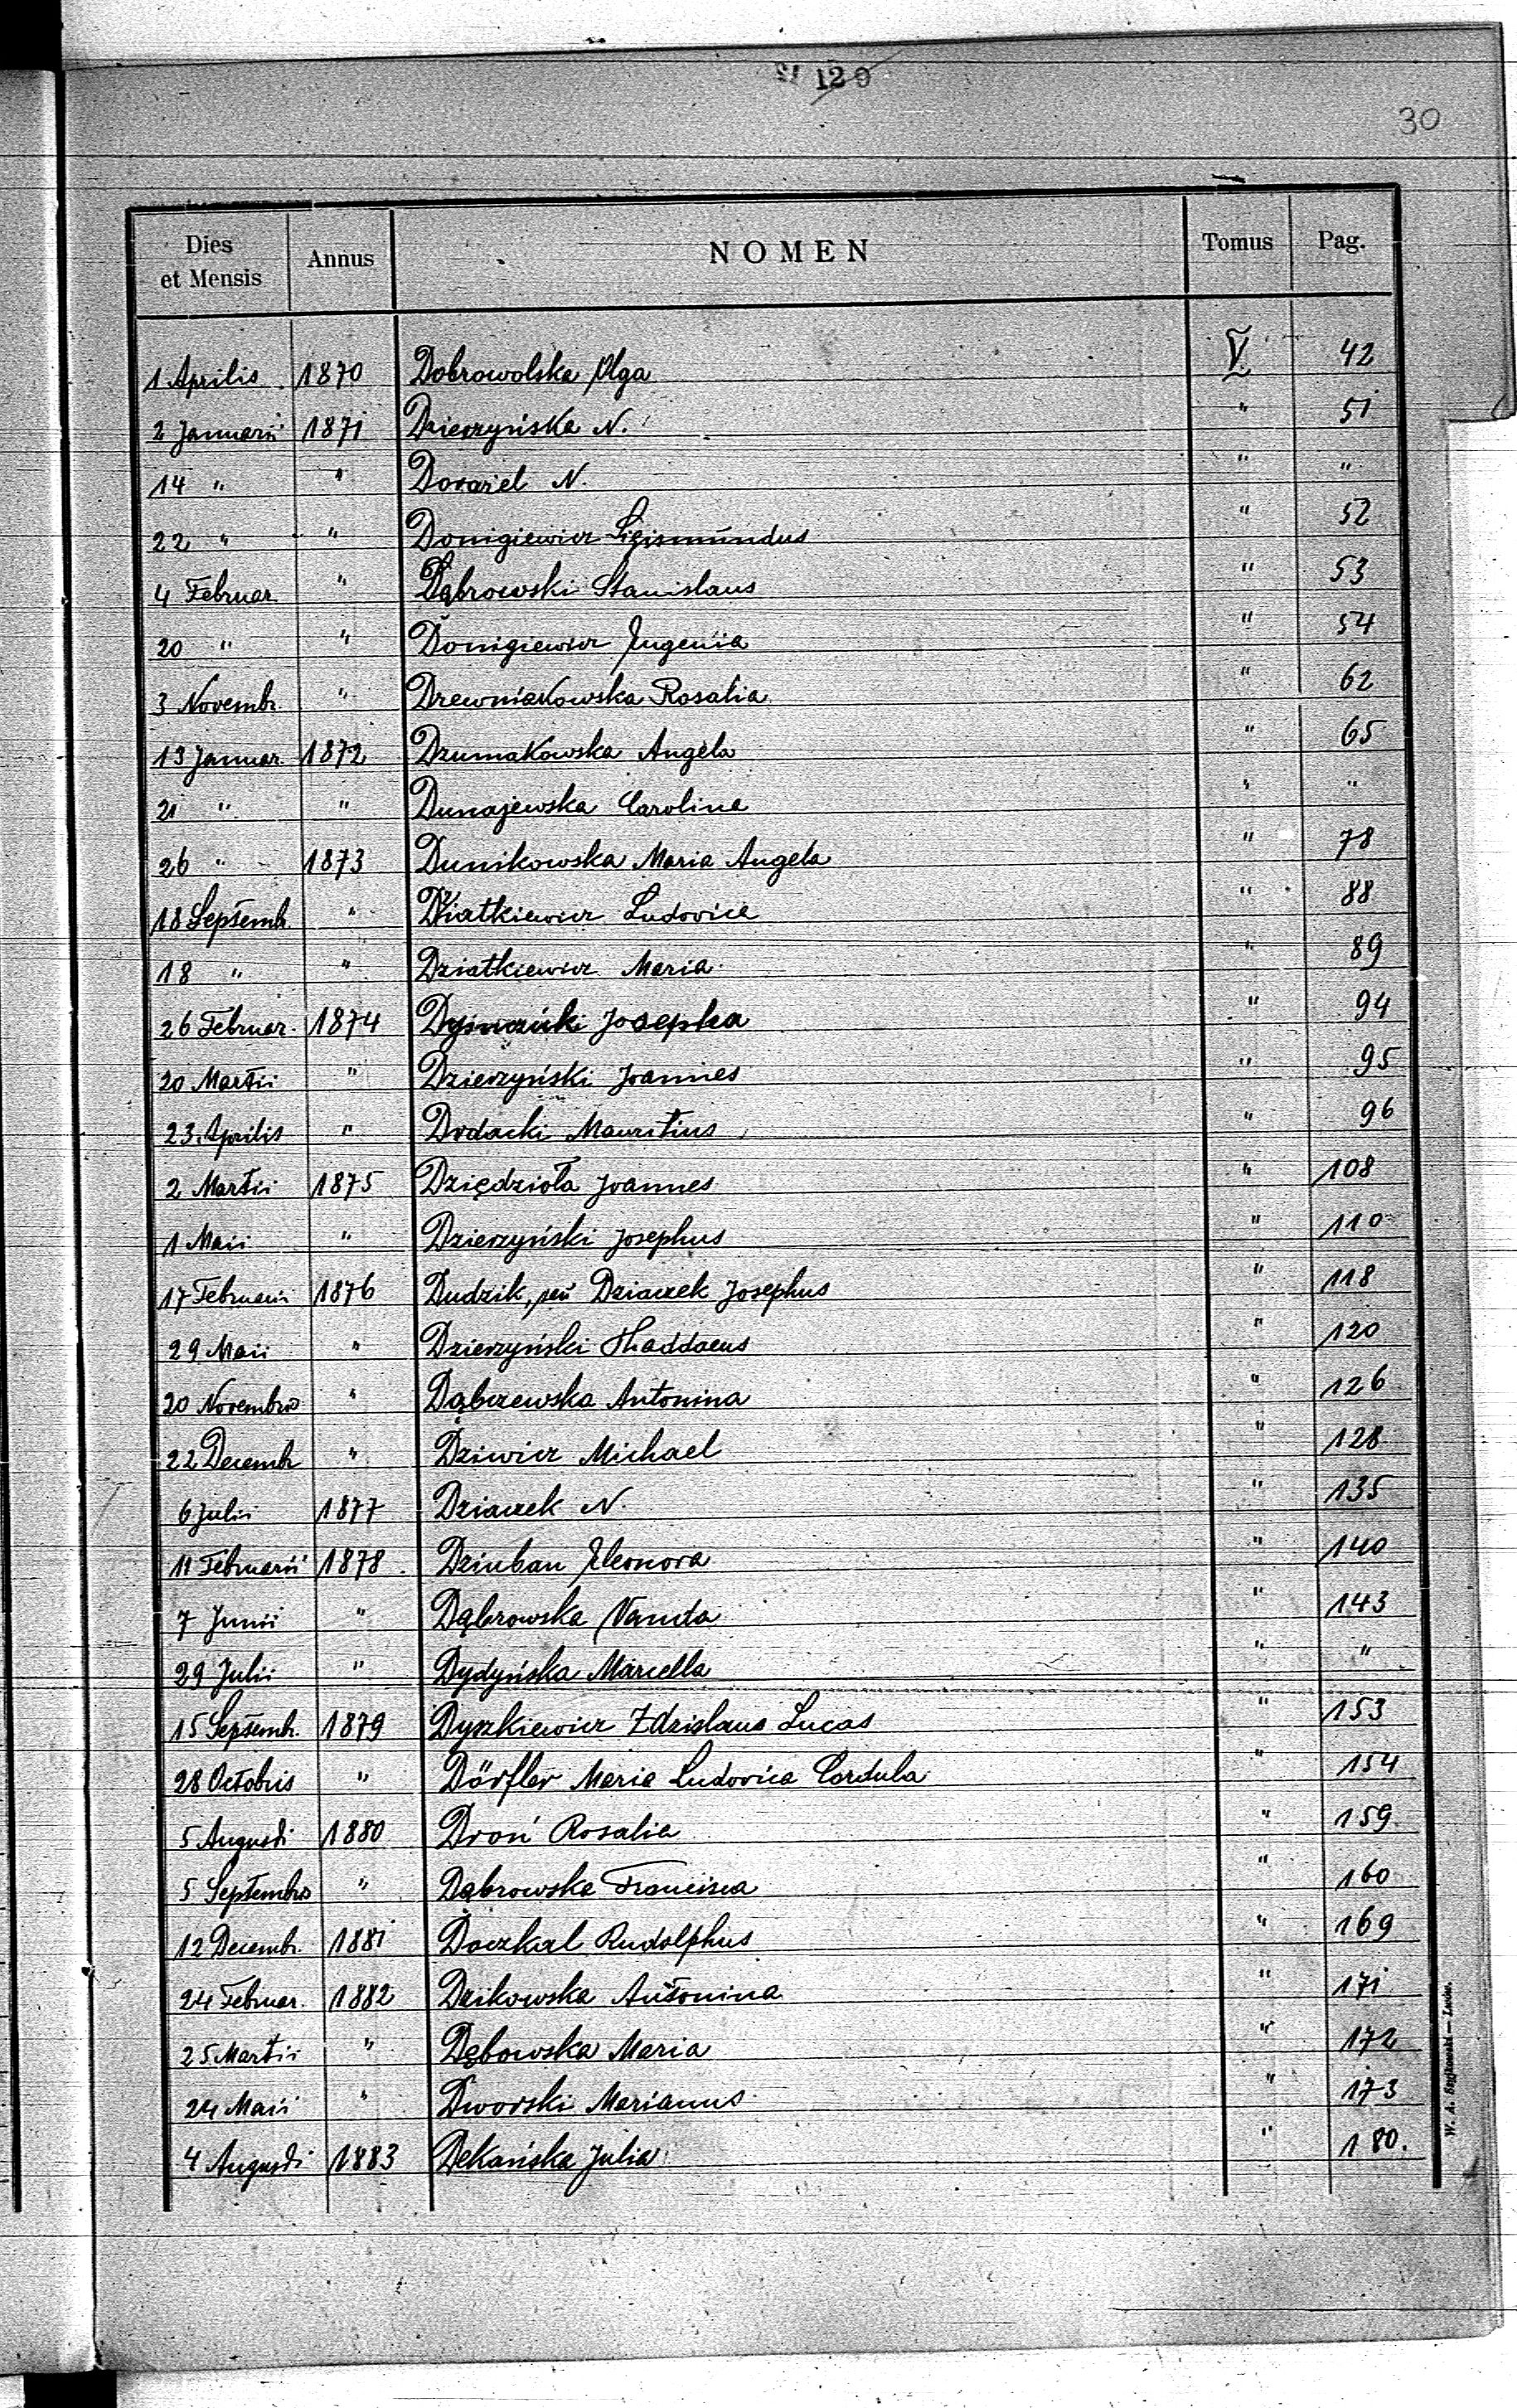 129
30
Dies et Mensis Annus NOMEN Tomus Pag.
1 Aprilis 1870 Dobrowolska Olga V. 42
2 Januarii 1871 Dzierzyńska N. " 51
14 " " N. " "
22 " " Donigiewicz Sigismundus " 52
4 Februar. " Dąbrowski Stanislaus " 53
20 " " Donigiewicz Eugenia " 54
3 Novembr. " Drewniakowska Rosalia " 62
13 Januar. 1872 Dzumakowska Angela " 65
21 " " Dunajewska Carolina " "
26 " 1873 Dunikowska Maria Angela " 78
18 Septemb. " Dziatkiewicz Ludovica " 88
18 " " Dziatkiewicz Maria " 89
26 Februar. 1874 Josepha " 94
20 Martii " Dzierzyński Joannes " 95
23 Aprilis " Dodacki Mauritius " 96
2 Martii 1875 Dziędzioła Joannes " 108
1 Maii " Dzierzyński Josephus " 110
17 Februarii 1876 Dudzik, seu Dziaczek Josephus " 118
29 Maii " Dzierzyński Thaddaeus " 120
20 Novembris " Dąbczewska Antonina " 126
22 Decemb. " Dziwicz Michael " 128
6 Julii 1877 Dziaczek N. " 135
11 Februarii 1878. Dziuban Eleonora " 140
7 Junii " Dąbrowska Vanda " 143
29 Julii " Dydyńska Marcella " "
15 Septemb. 1879 Dyszkiewicz Zdzislaus Lucas " 153
28 Octobris " Dörfler Maria Ludovica Cordula " 154
5 Augusti 1880 Droń Rosalia " 159
5 Septembris " Dąbrowska Francisca " 160
12 Decemb. 1881 Doczkal Rudolphus " 169
24 Februar. 1882 Dzikowska Antonina " 171
25 Martii " Dębowska Maria " 172
24 Maii " Dworski Marianus " 173
4 Augusti 1883 Dekańska Julia " 180.
W. A. Szyjkowski — Lwów.